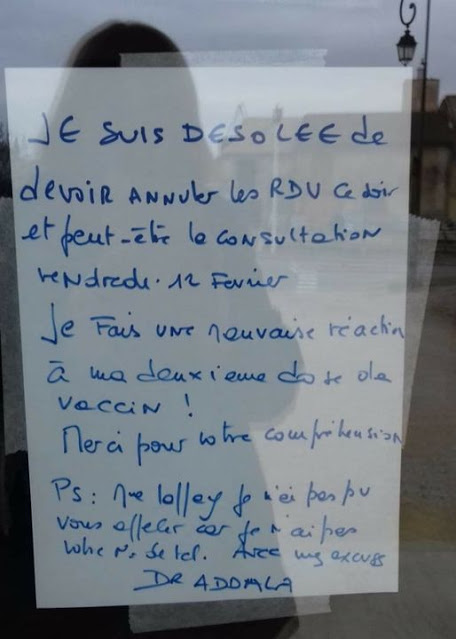 JE SUIS DESOLEE de
devoir ANNuler les RDV ce soir
et peut-être la consultation
vendredi. 12 Fevrier
Je Fais une mauvaise réaction
à ma deuxieme dose de
vaccin !
Merci pour votre compréhension
Ps : Mme je n'ai pas pu
vous appeler car je n'ai pas
votre N° de tel. Avec mes excuses
DR ADOMLA